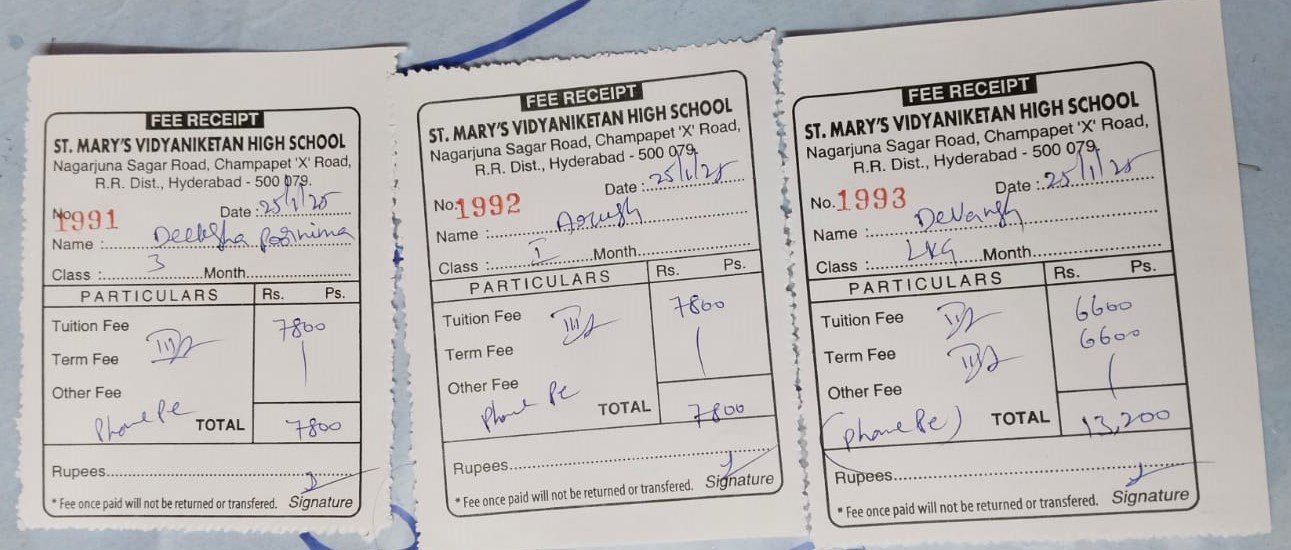 FEE RECEIPT
ST. MARY'S VIDYANIKETAN HIGH SCHOOL
Nagarjuna Sagar Road, Champapet 'X' Road,
R.R. Dist., Hyderabad - 500 079.
No. 1991 Date : 25/1/25
Name : Deeksha Poornima
Class : 3 Month
PARTICULARS Rs. Ps.
Tuition Fee 7800
Term Fee III
Other Fee
Phone Pe TOTAL 7800
Rupees
* Fee once paid will not be returned or transfered. Signature
FEE RECEIPT
ST. MARY'S VIDYANIKETAN HIGH SCHOOL
Nagarjuna Sagar Road, Champapet 'X' Road,
R.R. Dist., Hyderabad - 500 079.
No. 1992 Date : 25/1/25
Name : Aarush
Class : I Month
PARTICULARS Rs. Ps.
Tuition Fee III 7800
Term Fee
Other Fee
Phone Pe TOTAL 7800
Rupees
* Fee once paid will not be returned or transfered. Signature
FEE RECEIPT
ST. MARY'S VIDYANIKETAN HIGH SCHOOL
Nagarjuna Sagar Road, Champapet 'X' Road,
R.R. Dist., Hyderabad - 500 079.
No. 1993 Date : 25/1/25
Name : Devansh
Class : LKG Month
PARTICULARS Rs. Ps.
Tuition Fee 6600
Term Fee III 6600
Other Fee
(Phone Pe) TOTAL 13,200
Rupees
* Fee once paid will not be returned or transfered. Signature